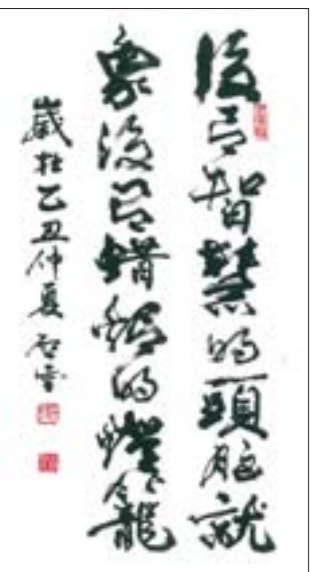 没有智慧的頭腦就
象没有蜡燭的燈籠
歲在乙丑仲夏